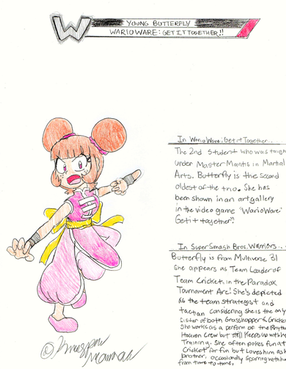 W
YOUNG BUTTERFLY
WARIOWARE: GET IT TOGETHER!!
In WarioWare: Get it Together...
The 2nd Student who was taught
under Master Mantis in Martial
Arts. Butterfly is the second
oldest of the trio. She has
been shown in an art gallery
in the video game "WarioWare
Get it together".
In Super Smash Bros. Warriors...
Butterfly is from Multiverse '81
She appears as Team Leader of
Team Cricket in the Paradox
Tournament Arc. She's depicted
as the team strategist and
considering she is the only
sister of both Grasshopper & Cricket
She works as a perform of the Rhythm
Heaven Crew but still keeps up with her
Training. She often pokes fun at
Cricket for fun but loves him as her
brother. occasionally sparring with him
from time to time.